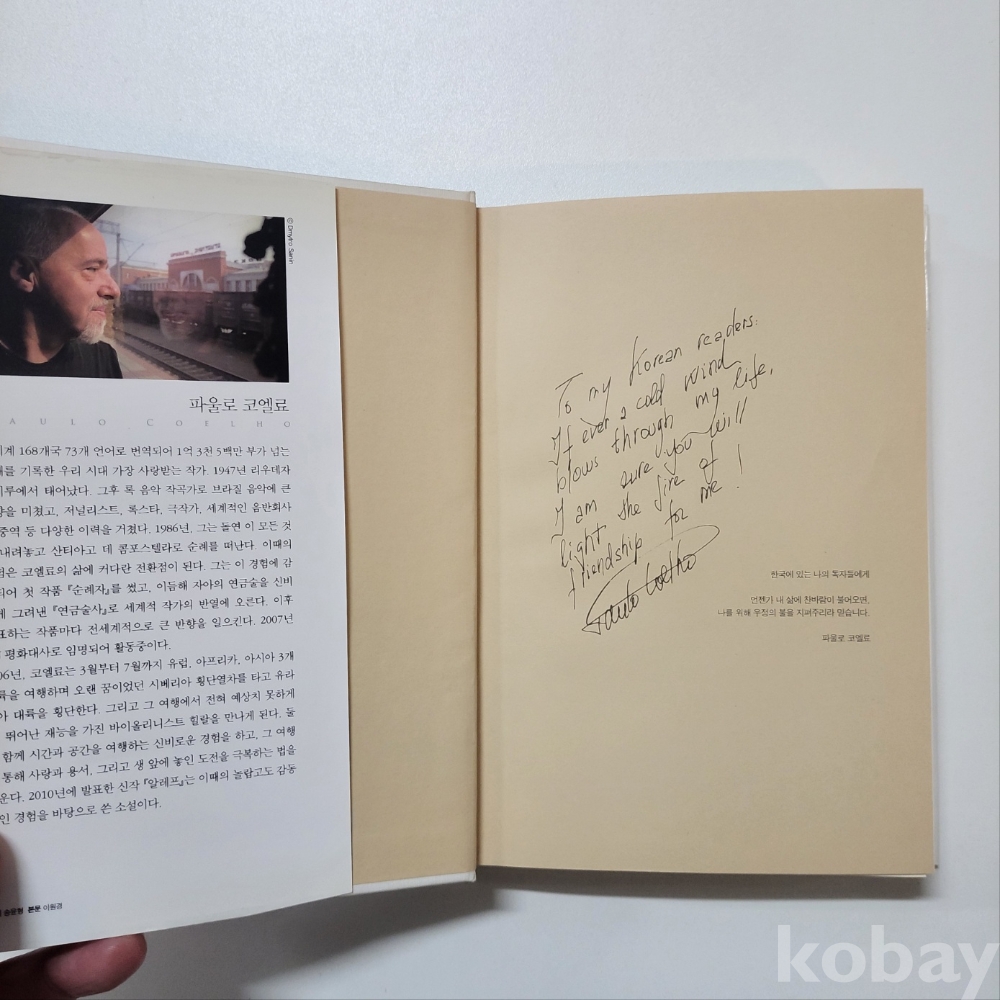 © Dmytro Sanin
파울로 코엘료
AULO COELHO
세계 168개국 73개 언어로 번역되어 1억 3천 5백만 부가 넘는
를 기록한 우리 시대 가장 사랑받는 작가. 1947년 리우데자
루에서 태어났다. 그후 록 음악 작곡가로 브라질 음악에 큰
향을 미쳤고, 저널리스트, 록스타, 극작가, 세계적인 음반회사
중역 등 다양한 이력을 거쳤다. 1986년, 그는 돌연 이 모든 것
내려놓고 산티아고 데 콤포스텔라로 순례를 떠난다. 이때의
험은 코엘료의 삶에 커다란 전환점이 된다. 그는 이 경험에 감
되어 첫 작품 『순례자』를 썼고, 이듬해 자아의 연금술을 신비
게 그려낸 『연금술사』로 세계적 작가의 반열에 오른다. 이후
표하는 작품마다 전세계적으로 큰 반향을 일으킨다. 2007년
평화대사로 임명되어 활동중이다.
06년, 코엘료는 3월부터 7월까지 유럽, 아프리카, 아시아 3개
륙을 여행하며 오랜 꿈이었던 시베리아 횡단열차를 타고 유라
아 대륙을 횡단한다. 그리고 그 여행에서 전혀 예상치 못하게
뛰어난 재능을 가진 바이올리니스트 힐랄을 만나게 된다. 둘
함께 시간과 공간을 여행하는 신비로운 경험을 하고, 그 여행
통해 사랑과 용서, 그리고 생 앞에 놓인 도전을 극복하는 법을
운다. 2010년에 발표한 신작 『알레프』는 이때의 놀랍고도 감동
인 경험을 바탕으로 쓴 소설이다.
송윤형 본문 이원경
To my Korean readers:
If ever a cold wind
blows through my life,
I am sure you will
light the fire of
friendship for me!
Paulo Coelho
한국에 있는 나의 독자들에게
언젠가 내 삶에 찬바람이 불어오면,
나를 위해 우정의 불을 지펴주리라 믿습니다.
파울로 코엘료
kobay